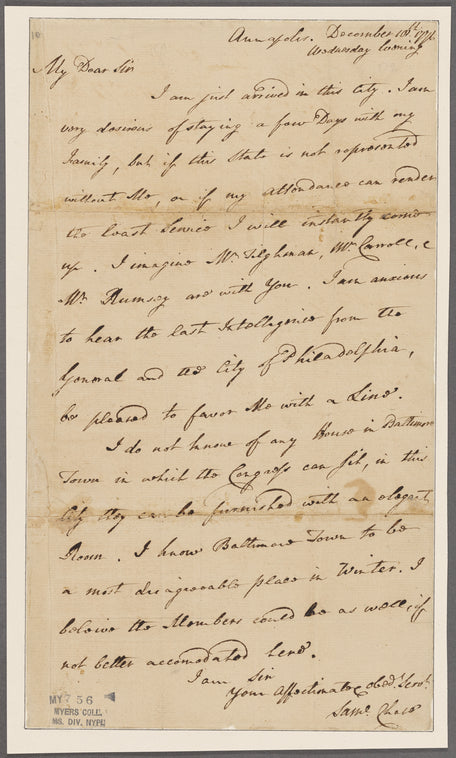 10
Annapolis. December 18th 1776.
Wednesday Evening
My Dear Sir
I am just arrived in this City. I am
very desirous of staying a few Days with my
Family, but if this State is not represented
without Me, or if my attendance can render
the least Service I will instantly come
up. I imagine Mr. Tilghman, Mr. Carroll, &
Mr. Rumsey are with You. I am anxious
to hear the last Intelligence from the
General and the City of Philadelphia,
be pleased to favor Me with a Line.
I do not know of any House in Baltimore
Town in which the Congress can sit, in this
City they can be furnished with an elegant
Room. I know Baltimore Town to be
a most disagreeable place in Winter. I
beleive the Members could be as well, if
not better accomodated here.
I am Sir
Your Affectionate & Obedt. Servt.
Saml. Chase
MY 756
MYERS COLL.
MS. DIV. NYPL